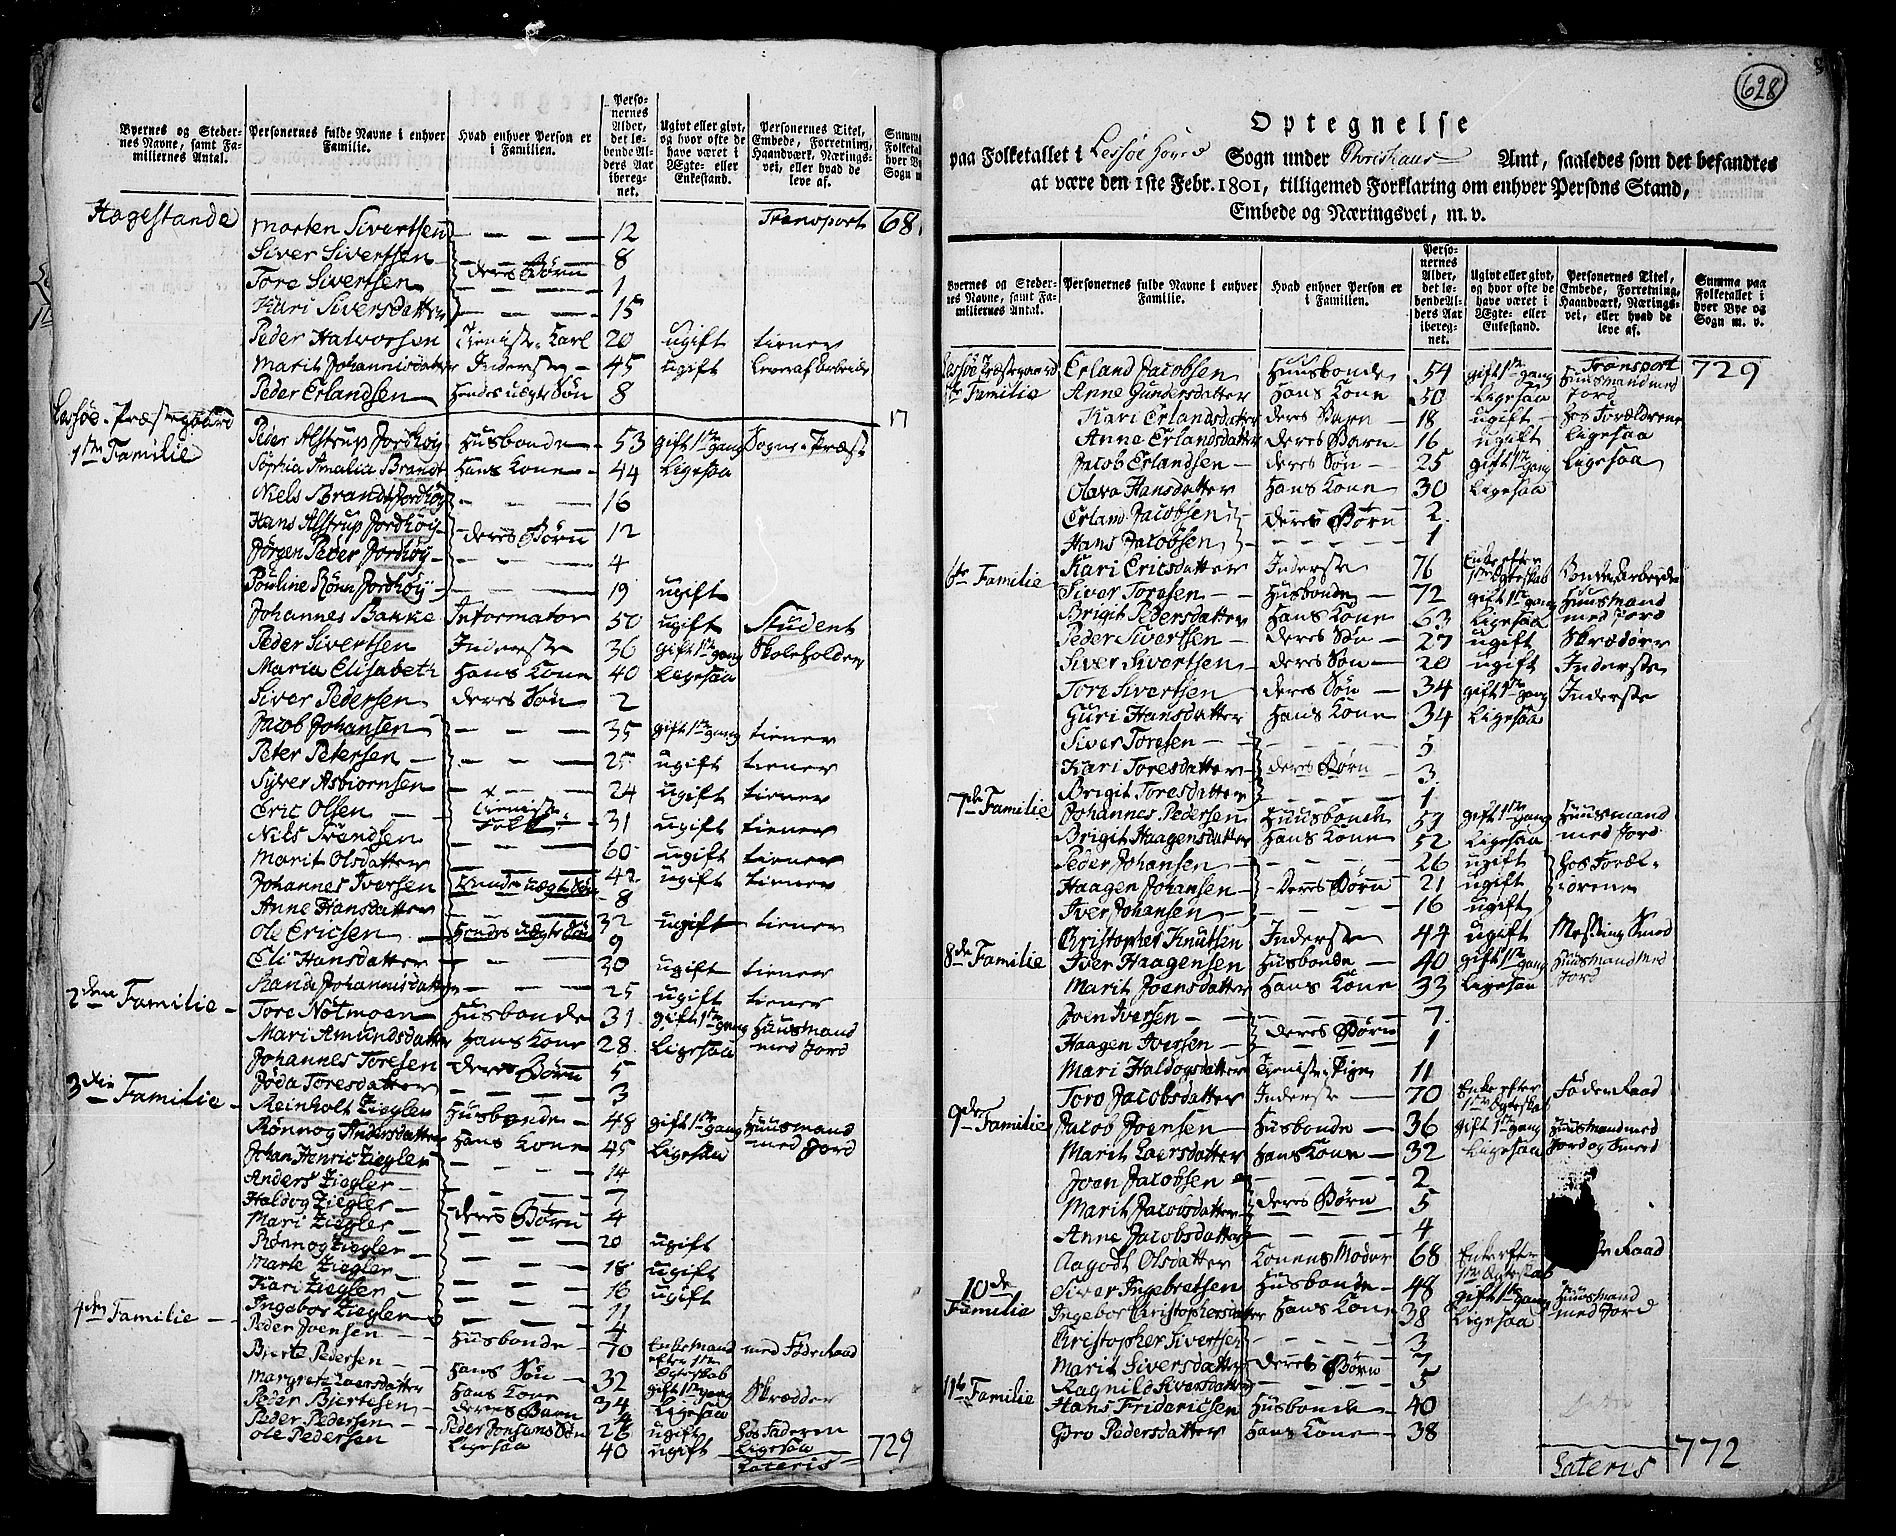 Byernes og Stedernes Navne, samt Familiernes Antal. Personernes fulde Navne i enhver Familie. Hvad enhver Person er i Familien. Personernes Alder, det løbende Alders Aar iberegnet. Ugivt eller givt, og hvor ofte de have været i Ægte- eller Enkestand. Personernes Titel, Embede, Forretning, Haandværk, Næringsvei, eller hvad de leve af.
Hagestande Morten Sivertsen 12 Transport 68
Siver Sivertsen 8
Tore Sivertsen deres Børn 1
Kari Siversdatter 15
Peder Halvorsen Tieniste Karl 20 ugift tiener
Marit Johannisdatter Inderste 45 ugift
Peder Erlandsen Hendes uægte Søn 8
Lessøe Præstegaard 17
1ste Familie Peter Alstrup Jordhøy Husbonde 53 gift 1ste gang Sogne Præst
Sophia Amalia Brandt Hans Kone 44 Ligesaa
Niels Brandt Jordhøy 16
Hans Alstrup Jordhøy deres Børn 12
Jørgen Peder Jordhøy 4
Pouline Rønn Jordhøy 19 ugift
Johannes Bakke Informator 50 ugift Student
Peder Sivertsen Inderste 36 gift 1ste gang Skoleholder
Maria Elisabeth Hans Kone 40 Ligesaa
Siver Pedersen deres Søn 2
Jacob Johansen 35 gift 1ste gang tiener
Peter Petersen 25 ugift tiener
Syver Asbiornsen 24 ugift tiener
Eric Olsen Tieniste Folk 31 ugift tiener
Nils Svendsen 60 ugift tiener
Marit Olsdatter 42 ugift tiener
Johannes Iversen Hendes uægte Søn 8
Anne Hansdatter 32 ugift tiener
Ole Ericsen Hendes uægte Søn 9
Eli Hansdatter 20 ugift tiener
Rania Johannisdatter 25 ugift tiener
2den Familie Tore Notmoen Husbonde 31 gift 1ste gang Huusmand med Jord
Mari Amundsdatter Hans Kone 28 Ligesaa
Johannes Toresen deres Børn 5
Jøda Toresdatter 3
3die Familie Reinholt Ziegler Husbonde 48 gift 1ste gang Huusmand med Jord
Rønnog Andersdatter Hans Kone 45 Ligesaa
Johan Henric Ziegler 14
Anders Ziegler 7
Haldog Ziegler deres Børn 4
Mari Ziegler 20 ugift
Rønnog Ziegler 18 ugift
Marte Ziegler 16 ugift
Kari Ziegler 11
Ingebor Ziegler 4
4de Familie Peder Joensen Husbonde 70 Enkemand efter 1ste Ægteskab med Føde Raad
Bierte Pedersen Hans Søn 32 gift 1ste gang Skrædder
Margrete Laersdatter Hans Kone 34 Ligesaa
Peder Biertesen deres Barn 4
Peder Pedersen Peder Jonsens Søn 26 ugift hos Faderen
Ole Pedersen Ligesaa 40 ugift Ligesaa
Lateris 729
628
Optegnelse
paa Folketallet i Lessøe Hoved Sogn under Christians Amt, saaledes som det befandtes
at være den 1ste Febr. 1801, tilligemed Forklaring om enhver Persons Stand,
Embede og Næringsvei, m. v.
Byernes og Stedernes Navne, samt Familiernes Antal. Personernes fulde Navne i enhver Familie. Hvad enhver Person er i Familien. Personernes Alder, det løbende Alders Aar iberegnet. Ugivt eller givt, og hvor ofte de have været i Ægte- eller Enkestand. Personernes Titel, Embede, Forretning, Haandværk, Næringsvei, eller hvad de leve af. Summa paa Folketallet i hver Bye og Sogn m. v.
Transport 729
Lessøe Præstegaard Erland Jacobsen Huusbonde 54 gift 1ste gang Huusmand med Jord
5te Familie Anne Gundersdatter Hans Kone 50 Ligesaa
Kari Erlandsdatter deres Barn 18 ugift hos Forældrene
Anne Erlandsdatter deres Barn 16 ugift Ligesaa
Jacob Erlandsen deres Søn 25 gift 1ste gang Ligesaa
Olava Hansdatter Hans Kone 30 Ligesaa
Erland Jacobsen deres Børn 2
Hans Jacobsen 1
Kari Ericsdatter Inderste 76 Enke efter 1ste Ægteskab Bonde Arbeide
6te Familie Siver Toresen Husbonde 72 gift 1ste gang Huusmand med Jord
Brigit Pedersdatter Hans Kone 63 Ligesaa
Peder Sivertsen deres Søn 27 ugift Skrædder
Siver Sivertsen deres Søn 20 ugift Inderste
Tore Sivertsen deres Søn 34 gift 1ste gang Inderste
Guri Hansdatter Hans Kone 34 Ligesaa
Siver Toresen 5
Kari Toresdatter deres Børn 3
Brigit Toresdatter 1
7de Familie Johannes Pedersen Huusbonde 59 gift 1ste gang Huusmand med Jord
Brigit Haagensdatter Hans Kone 52 Ligesaa
Peder Johansen 26 ugift hos Forældrene
Haagen Johansen Deres Børn 21 ugift
Iver Johansen 16 ugift
Christopher Knutsen Inderste 44 ugift Messing Smed
8de Familie Iver Haagensen Husbonde 40 gift 1ste gang Huusmand med Jord
Marit Joensdatter Hans Kone 33 Ligesaa
Joen Iversen 7
Haagen Iversen deres Børn 1
Mari Haldogsdatter Tieniste Pige 11
Toro Jacobsdatter Inderste 70 Enke efter 1ste Ægteskab Føde Raad
9de Familie Jacob Joensen Husbonde 36 gift 1ste gang Huusmand med Jord og Smed
Marit Laersdatter Hans Kone 32 Ligesaa
Joen Jacobsen 2
Marit Jacobsdatter deres Børn 5
Anne Jacobsdatter 4
Aagodt Olsdatter Konens Moder 68 Enke efter 1ste Ægteskab Raad
10de Familie Siver Ingebretsen Husbonde 48 gift 1ste gang Huusmand med Jord
Ingebor Christophersdatter Hans Kone 38 Ligesaa
Christopher Sivertsen 3
Marit Siversdatter deres Børn 7
Ragnild Siversdatter 5
11te Familie Hans Fridericsen Husbonde 40
Gøro Pedersdatter Hans Kone 38
Lateris 772